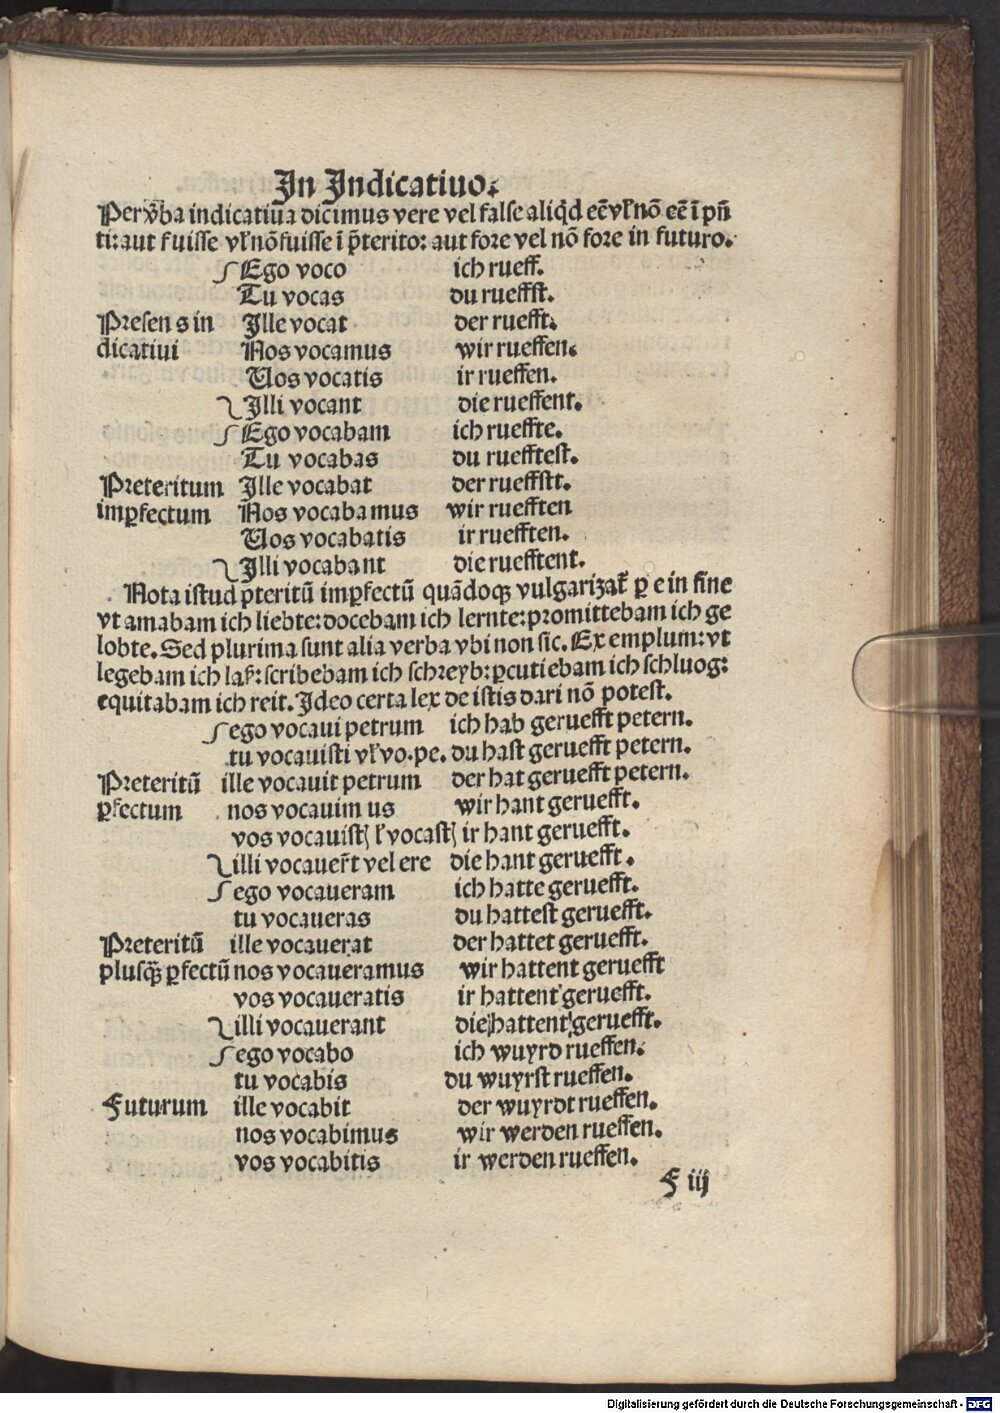 In Indicatiuo.
Per v̄ba indicatiua dicimus vere vel false aliq̄d eē vł nō eē ī pn̄
ti: aut fuisse vł nō fuisse ī p̄terito: aut fore vel nō fore in futuro.
Ego voco ich rueff.
Tu vocas du rueffst.
Presens in Ille vocat der ruefft.
dicatiui Nos vocamus wir rueffen.
Uos vocatis ir rueffen.
Illi vocant die rueffent.
Ego vocabam ich rueffte.
Tu vocabas du ruefftest.
Preteritum Ille vocabat der rueffstt.
imꝑfectum Nos vocabamus wir ruefften
Uos vocabatis ir ruefften.
Illi vocabant die ruefftent.
Nota istud p̄teritū imꝑfectū quādoqꝫ vulgarizat̄ ꝑ e in fine
vt amabam ich liebte: docebam ich lernte: promittebam ich ge
lobte. Sed plurima sunt alia verba vbi non sic. Exemplum: vt
legebam ich laß: scribebam ich schreyb: ꝑcutiebam ich schluog:
equitabam ich reit. Ideo certa lex de istis dari nō potest.
ego vocaui petrum ich hab geruefft petern.
tu vocauisti vł vo.pe. du hast geruefft petern.
Preteritū ille vocauit petrum der hat geruefft petern.
ꝑfectum nos vocauimus wir hant geruefft.
vos vocauistꝭ ł vocastꝭ ir hant geruefft.
illi vocauer̄t vel ere die hant geruefft.
ego vocaueram ich hatte geruefft.
tu vocaueras du hattest geruefft.
Preteritū ille vocauerat der hattet geruefft.
plusqꝫ̄ ꝑfectū nos vocaueramus wir hattent geruefft
vos vocaueratis ir hattent geruefft.
illi vocauerant die hattent geruefft.
ego vocabo ich wuyrd rueffen.
tu vocabis du wuyrst rueffen.
Futurum ille vocabit der wuyrdt rueffen.
nos vocabimus wir werden rueffen.
vos vocabitis ir werden rueffen.
F iij
Digitalisierung gefördert durch die Deutsche Forschungsgemeinschaft - DFG